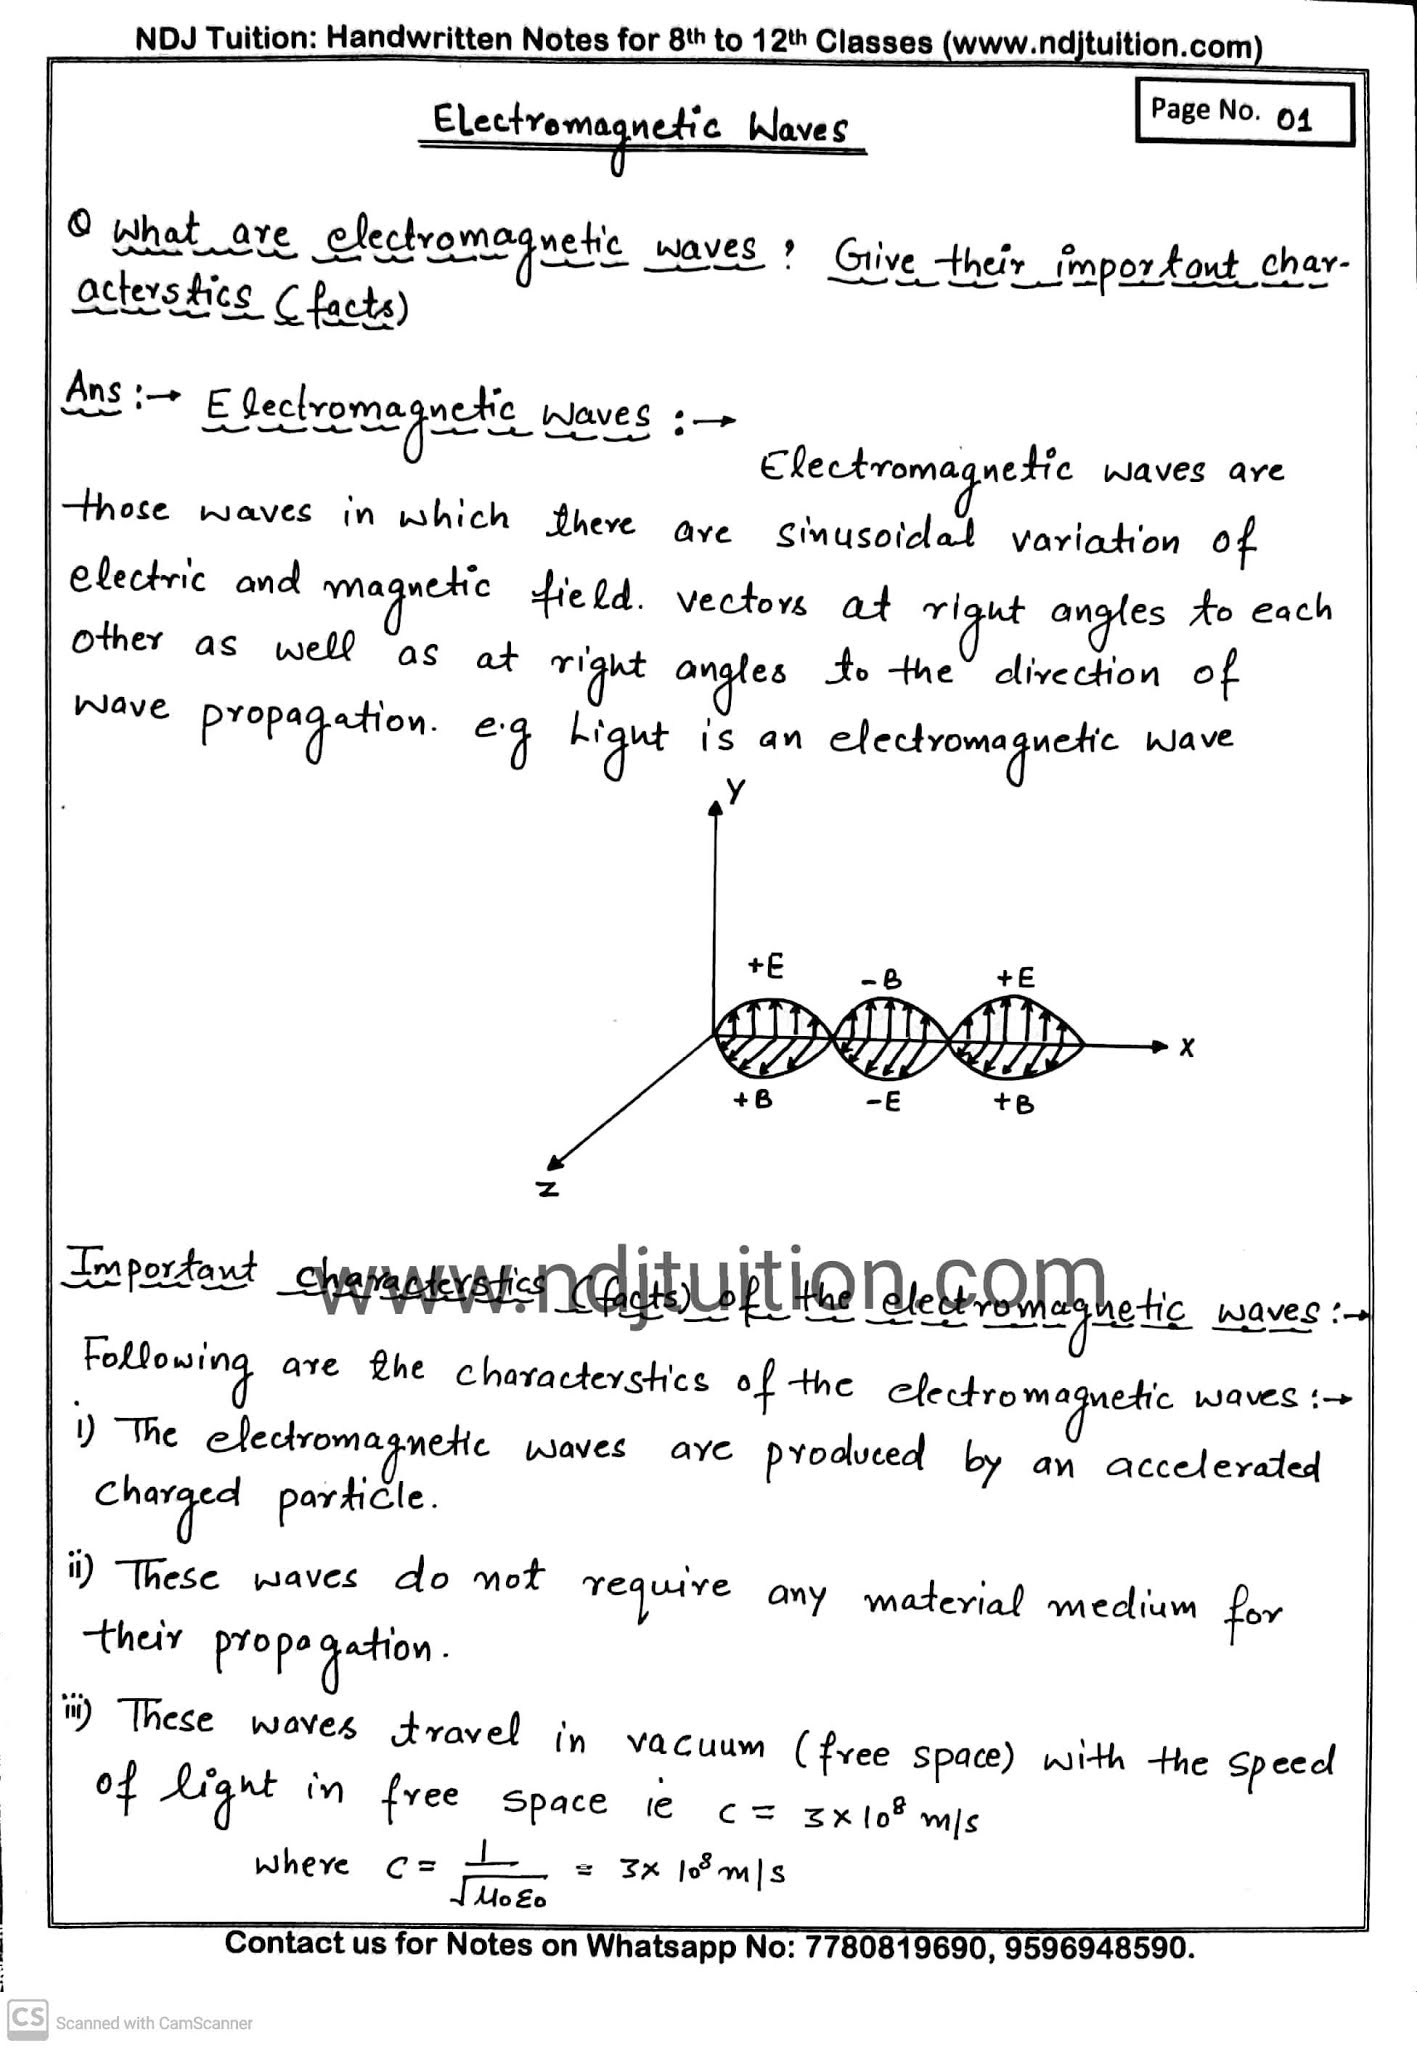 NDJ Tuition: Handwritten Notes for 8th to 12th Classes (www.ndjtuition.com)
Page No. 01
Electromagnetic Waves
Q What are electromagnetic waves? Give their important char-
acterstics (facts)
Ans :→ Electromagnetic waves :→
Electromagnetic waves are
those waves in which there are sinusoidal variation of
electric and magnetic field. vectors at right angles to each
other as well as at right angles to the direction of
wave propagation. e.g Light is an electromagnetic wave
Y
+E
-B
+E
X
+B
-E
+B
Z
www.ndjtuition.com
Important characterstics (facts) of the electromagnetic waves :→
Following are the characterstics of the electromagnetic waves :→
i) The electromagnetic waves are produced by an accelerated
charged particle.
ii) These waves do not require any material medium for
their propagation.
iii) These waves travel in vacuum (free space) with the speed
of light in free space ie c = 3×10⁸ m/s
where c = 1/√μ₀ε₀ = 3× 10⁸ m/s
Contact us for Notes on Whatsapp No: 7780819690, 9596948590.
CS Scanned with CamScanner